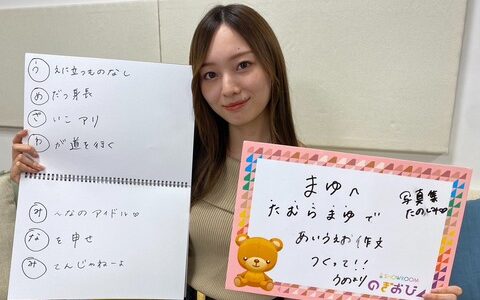 う えに立つものなし
め だつ身長
ざ いこ アリ
わ が道を行く
み ～なのアイドル♡
な を申せ
み てんじゃねーよ
まゆへ
たむらまゆで
あいうえお作文
つくって!!
うめより
写真集
たのしみ♡
SHOWROOM
のぎおび